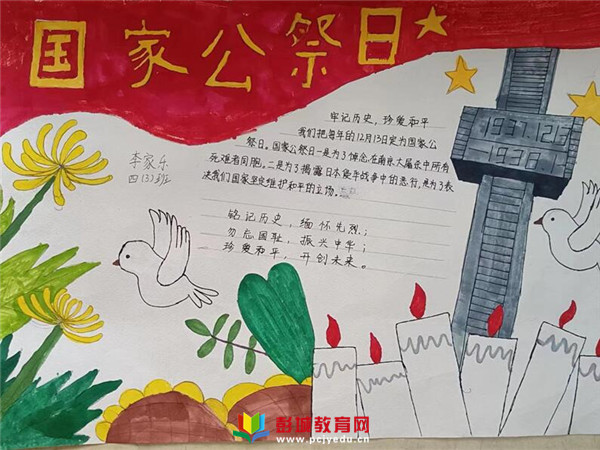 国家公祭日
李家乐
四(3)班
牢记历史，珍爱和平
我们把每年的12月13日定为国家公
祭日。国家公祭日一是为了悼念在南京大屠杀中所有
死难者同胞。二是为了揭露日本侵华战争中的恶行，是为了表
决我们国家坚定维护和平的立场。
铭记历史，缅怀先烈；
勿忘国耻，振兴中华；
珍爱和平，开创未来。
1937.12.13
1938.1
彭城教育网
www.pcjyedu.cn